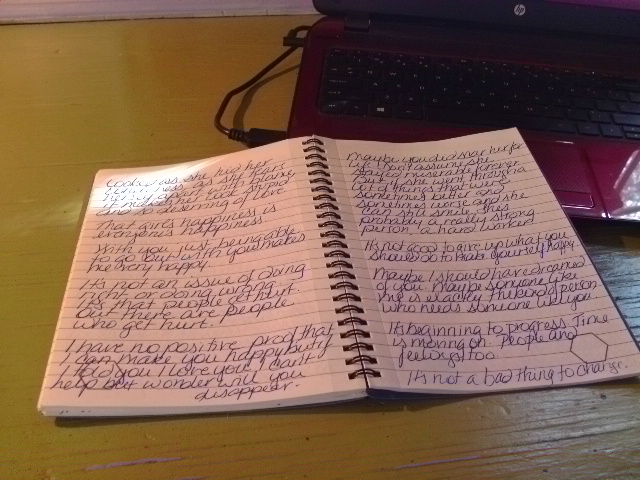 she hug her
her apart with
it made her look stupid
and so deserving of love
That girls happiness is
everyone's happiness
With you, just being able
to go out with you makes
me very happy
It's not an issue of doing
right, or doing wrong.
It's that people get hurt.
But there are people
who get hurt.
I have no positive proof that
I can make you happy but if
I told you I love you, I can't
help but wonder will you
disappear.
Maybe you did scar her for
life, but don't assume she
stayed miserable forever.
But she went through a
lot of things that was
sometimes better and
sometimes worse and she
can still smile, she's
probably a really strong
person, a hard worker
It's not good to give up what you
should do to make yourself happy.
Maybe I should have dreamed
of you. maybe someone like
me is exactly the kind of person
who needs someone like you
It's beginning to progress. Time
is moving on. People and
feelings too.
It's not a bad thing to change.
hp